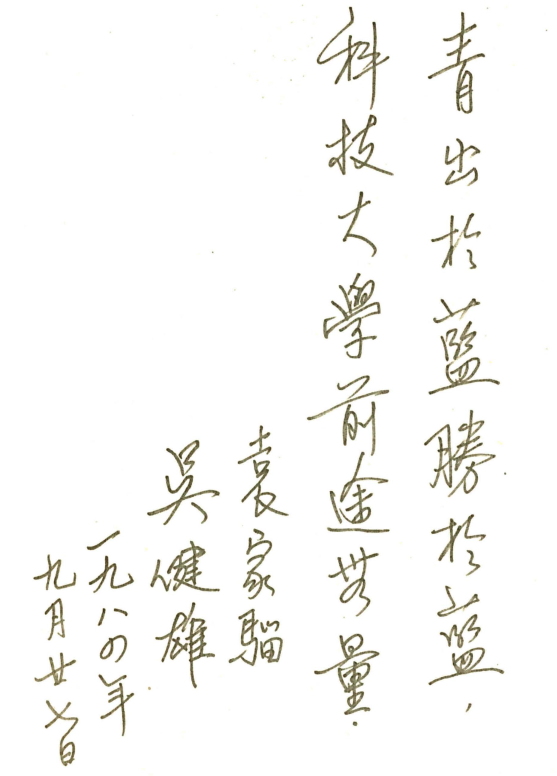 青出於藍勝於藍，
科技大學前途無量．
袁家騮
吳健雄
一九八四年
九月廿七日